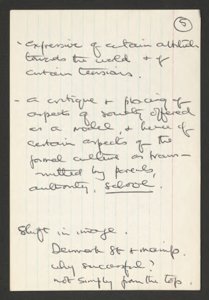 5
- expressive of certain attitudes
towards the world & of
certain tensions.
- a critique & placing of
aspects of society offered
as a model, & hence of
certain aspects of the
formal culture as trans-
mitted by parents,
authority, school.
Shift in image.
Denmark St &
why successful?
not simply from the top.